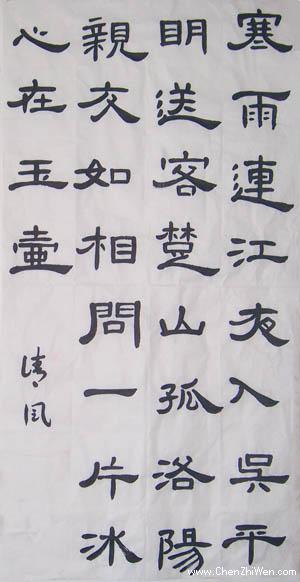 寒雨連江夜入吳平
明送客楚山孤洛陽
親友如相問一片冰
心在玉壺
清風
www.ChenZhiWen.com